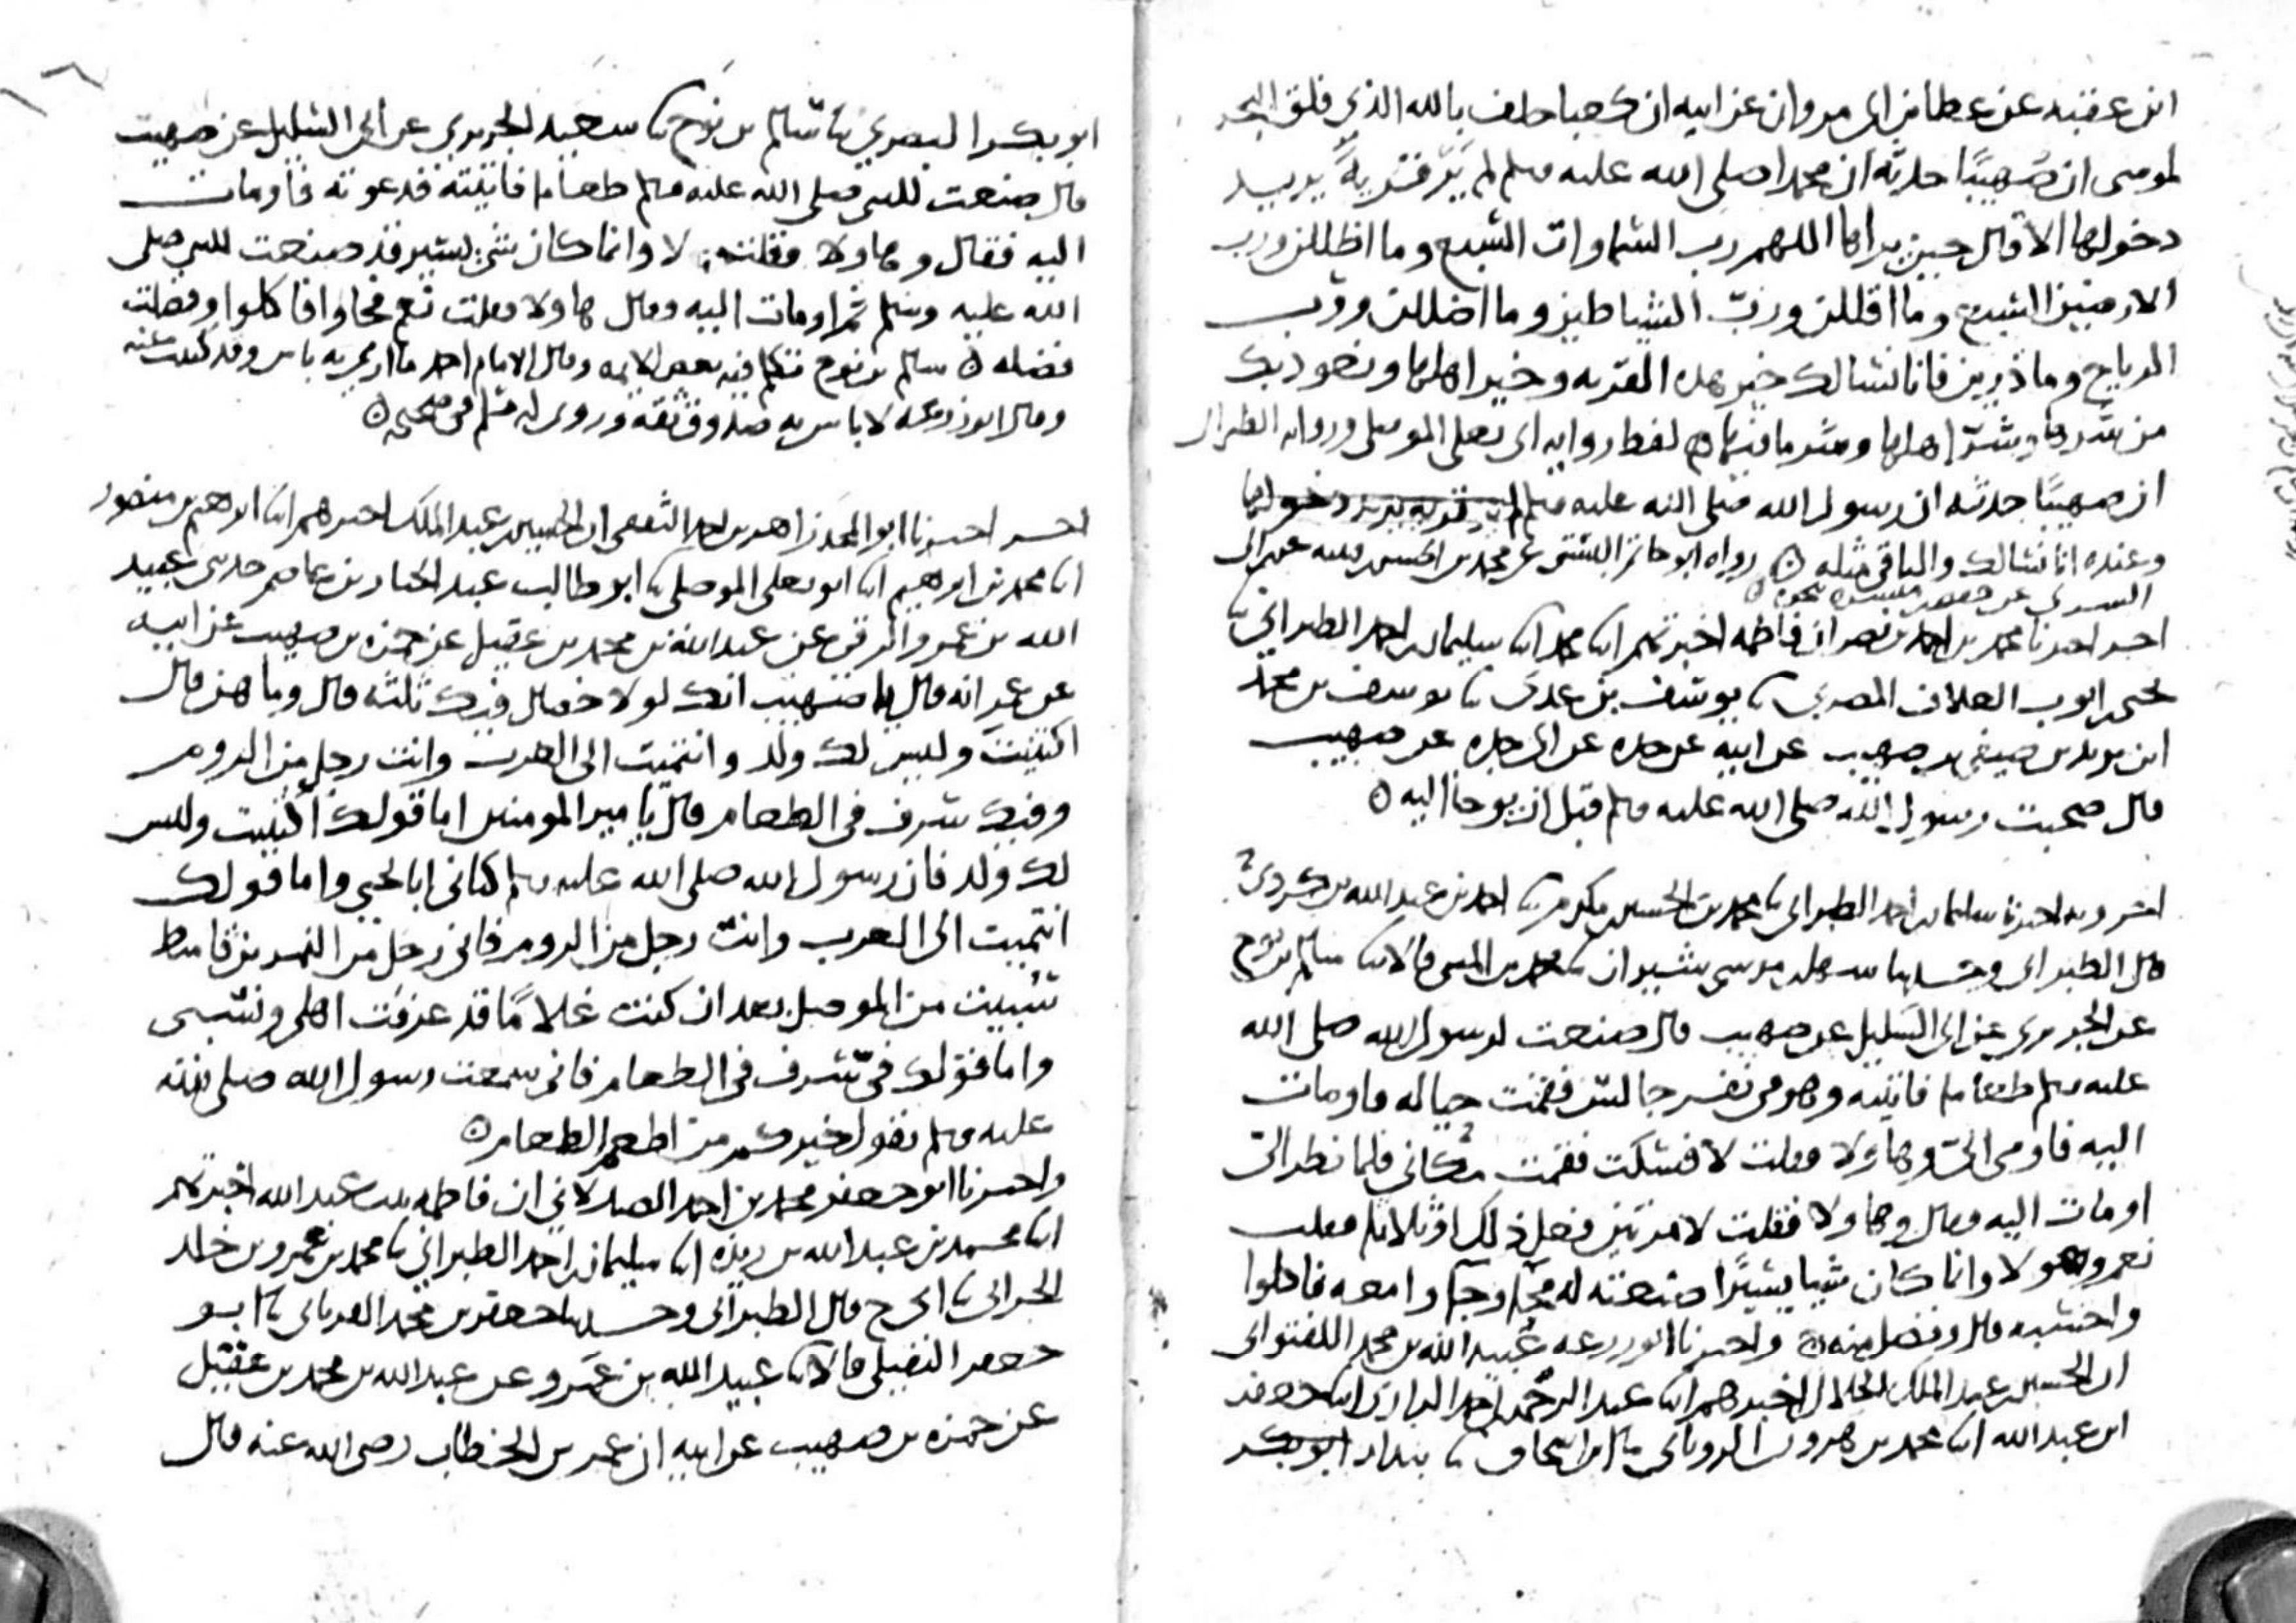 ابن عقبه عن عطا بن ابي مروان عن ابيه ان كعبا حلف بالله الذي فلق البحر
لموسى ان صهيبًا حدثه ان محمدا صلى الله عليه وسلم لم يَرَ قريةً يريد
دخولها الا قال حين يراها اللهم رب السماوات السبع وما اظللن ورب
الارضين السبع وما اقللن وربّ الشياطين وما اضللن وربّ
الرياح وما ذرين فانا نسالك خير هذه القريه وخير اهلها ونعوذ بك
من شرها وشرّ اهلها وشر ما فيها ٥ لفظ روايه ابي يعلى الموصلي وروايه الطبراني
ان صهيبًا حدثه ان رسول الله صلى الله عليه وسلم لم ير قريه يريد دخولها
وعنده انا نسالك والباقي مثله ٥ رواه ابو حاتم البستي عن محمد بن الحسن بن قتيبه عن ابن ابي
السري عن حفص بن ميسره نحوه ٥
اخبرنا محمد بن احمد بن نصر ان فاطمه اخبرتهم ابنا محمد ابنا سليمان بن احمد الطبراني ثنا
يحيى بن ايوب العلاف المصري ثنا يوسف بن عدي ثنا يوسف بن محمد
ابن يزيد بن صيفي بن صهيب عن ابيه عن جده عن ابي جده عن صهيب
قال صحبت رسول الله صلى الله عليه وسلم قبل ان يوحا اليه ٥
وبه اخبرنا سليمان بن احمد الطبراني ثنا محمد بن الحسين بن مكرم ثنا احمد بن عبيد الله بن كردي ح
قال الطبراني وحدثنا سهل بن موسى شيران ثنا محمد بن المثنى قالا ثنا سالم بن نوح
عن الجريري عن ابي السليل عن صهيب قال صنعت لرسول الله صلى الله
عليه وسلم طعاما فاتيته وهو في نفر جالس فقمت حياله فاومات
اليه فاومى اليّ وهاولا فقلت لا فسكت فقمت مكاني فلما نظر اليّ
اومات اليه فقال وهاولا فقلت لا مرتين فعل ذلك او ثلاثا فقلت
نعم وهولا وانما كان شيا يسيرًا صنعته له فجا وجاوا معه فاكلوا
واحسبه قال وفضل منه ٥ واخبرنا ابو زرعه عبيد الله بن محمد اللفتواني
ان الحسين بن عبد الملك الخلال اخبرهم ابنا عبد الرحمن بن احمد الرازي ابنا جعفر
ابن عبد الله ابنا محمد بن هرون الروياني ثنا ابن اسحاق ثنا بندار ابو بكر
ابو بكر البصري ثنا سالم بن نوح ثنا سعيد الجريري عن ابي السليل عن صهيب
قال صنعت للنبي صلى الله عليه وسلم طعاما فاتيته فدعوته فاومات
اليه فقال وهاولا فقلت لا وانما كان شي يسير قد صنعت للنبي صلى
الله عليه وسلم ثم اومات اليه وقال هاولا فقلت نعم فجاوا فاكلوا وفضلت
فضله ٥ سالم بن نوح تكلم فيه بعض الايمه وقال الامام احمد ما ارى به باس وقد كتبت عنه
وقال ابو زرعه لا باس به صدوق ثقه وروى له مسلم في صحيحه ٥
اخبرنا ابو المجد زاهر بن احمد الثقفي ان الحسين بن عبد الملك اخبرهم ابنا ابرهيم بن منصور
ابنا محمد بن ابرهيم ابنا ابو يعلى الموصلي ثنا ابو طالب عبد الجبار بن عاصم حدثني عبيد
الله بن عمرو الرقي عن عبد الله بن محمد بن عقيل عن حمزه بن صهيب عن ابيه
عن عمر انه قال يا صهيب انك لولا خصال فيك ثلثه قال وما هن قال
اكتنيت وليس لك ولد وانتميت الى العرب وانت رجل من الروم
وفيك سرف في الطعام قال يا مير المومنين اما قولك اكتنيت وليس
لك ولد فان رسول الله صلى الله عليه وسلم كناني ابا يحيى واما قولك
انتميت الى العرب وانت رجل من الروم فاني رجل من النمر بن قاسط
سبيت من الموصل بعد ان كنت غلامًا قد عرفت اهلي ونسبي
واما قولك فيّ سرف في الطعام فاني سمعت رسول الله صلى الله
عليه وسلم يقول خيركم من اطعم الطعام ٥
واخبرنا ابو جعفر محمد بن احمد الصيدلاني ان فاطمه بنت عبد الله اخبرتهم
ابنا محمد بن عبد الله بن ريذه ابنا سليمان بن احمد الطبراني ثنا محمد بن عمرو بن خالد
الحراني ثنا ابي ح قال الطبراني وحدثنا جعفر بن محمد الفريابي ثنا ابو
جعفر النفيلي قالا ثنا عبيد الله بن عَمرو عن عبد الله بن محمد بن عقيل
عن حمزه بن صهيب عن ابيه ان عمر بن الخطاب رضي الله عنه قال